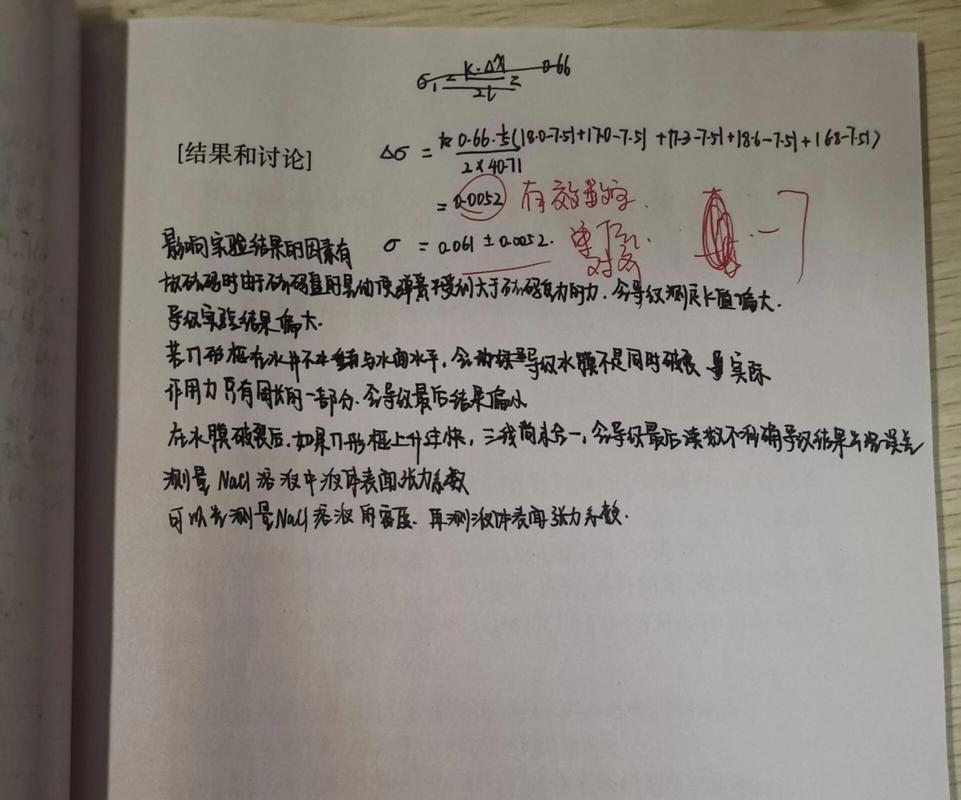 [结果和讨论] Δσ = 0.66·⅕(|8.0-7.5|+|7.0-7.5|+|7.3-7.5|+|8.6-7.5|+|6.8-7.5|)
2×40.71
= 0.0052 有效数字.
影响实验结果的因素有 σ = 0.061 ± 0.0052. 单位.
放砝码时由于砝码 力,会导致测定k值偏大.
导致实验结果偏大.
若Π形框在水中 与水面水平,会 导致水膜不是同时破裂 实际
作用力只有周长的一部分.会导致最后结果偏小
在水膜破裂后.如果Π形框上升过快,三线尚未合一,会导致最后读数不准确导致结果 误差
测量NaCl溶液中液体表面张力系数
可以先测量NaCl溶液的密度.再测液体表面张力系数.